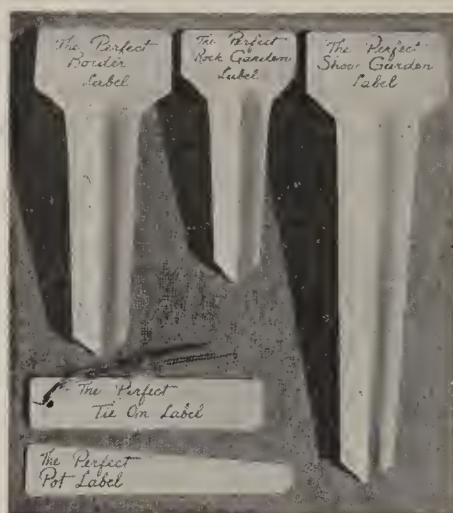 The Perfect
Border
Label
The Perfect
Rock Garden
Label
The "Perfect"
Show Garden
Label
The Perfect
Tie On Label
The Perfect
Pot Label